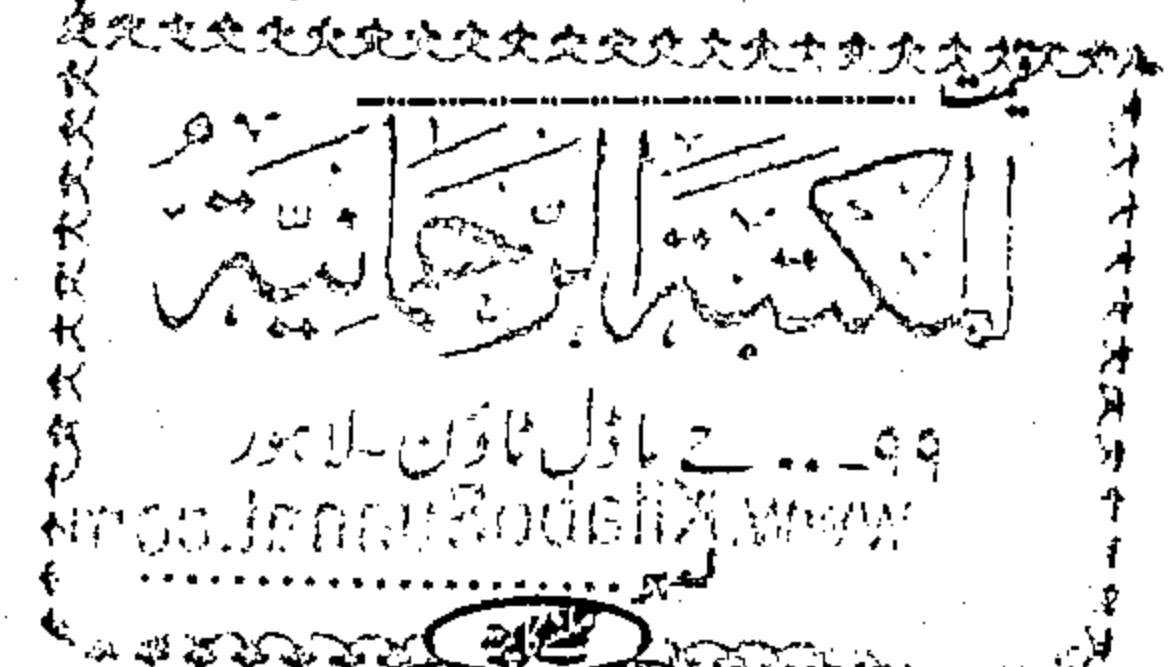 المكتبة الرحمانية
۹۹۔۔۔ جے ماڈل ٹاؤن ۔ لاہور
www.KitaboSunnat.com